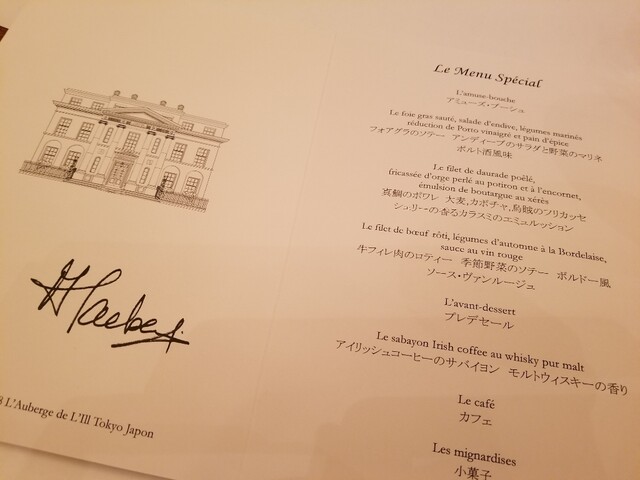 Le Menu Spécial
L'amuse-bouche
アミューズ・ブーシュ
Le foie gras sauté, salade d'endive, légumes marinés
réduction de Porto vinaigré et pain d'épice
フォアグラのソテー アンディーブのサラダと野菜のマリネ
ポルト酒風味
Le filet de daurade poêlé,
fricassée d'orge perlé au potiron et à l'encornet,
émulsion de boutargue au xérès
真鯛のポワレ 大麦,カボチャ,烏賊のフリカッセ
シェリーの香るカラスミのエミュルッション
Le filet de bœuf rôti, légumes d'automne à la Bordelaise,
sauce au vin rouge
牛フィレ肉のロティー 季節野菜のソテー ボルドー風
ソース・ヴァンルージュ
L'avant-dessert
プレデセール
Le sabayon Irish coffee au whisky pur malt
アイリッシュコーヒーのサバイヨン モルトウィスキーの香り
Le café
カフェ
Les mignardises
小菓子
L'Auberge de L'Ill Tokyo Japon